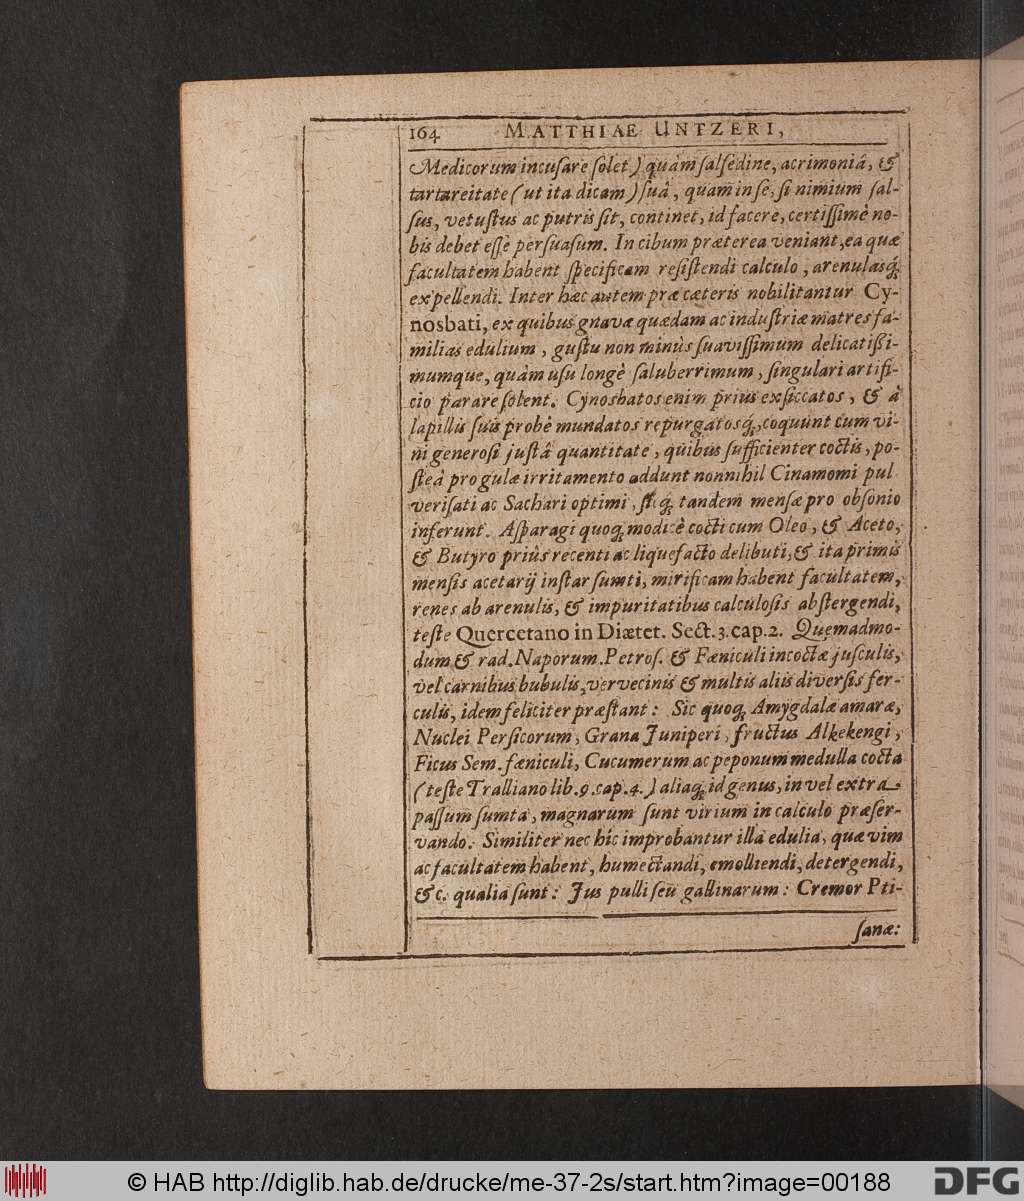 164 MATTHIAE UNTZERI,
Medicorum incusare solet) quàm salsedine, acrimoniâ, &
tartareitate (ut ita dicam) suâ, quam in se, si nimium sal-
sus, vetustus ac putris sit, continet, id facere, certissimè no-
bis debet esse persuasum. In cibum præterea veniant, ea quæ
facultatem habent specificam resistendi calculo, arenulasq́;
expellendi. Inter hæc autem præ cæteris nobilitantur Cy-
nosbati, ex quibus gnavæ quædam ac industriæ matres fa-
milias edulium, gustu non minùs suavissimum delicatißi-
mumque, quàm usu longè saluberrimum, singulari artifi-
cio parare solent. Cynosbatos enim prius exsiccatos, & à
lapillis suis probè mundatos repurgatosq́;, coquunt cum vi-
ni generosi justâ quantitate, quibus sufficienter coctis, po-
steà pro gulæ irritamento addunt nonnihil Cinamomi pul
verisati ac Sachari optimi, sicq́; tandem mensæ pro obsonio
inferunt. Asparagi quoq; modicè cocti cum Oleo, & Aceto,
& Butyro priùs recenti ac liquefacto delibuti, & ita primis
mensis acetarij instar sumti, mirificam habent facultatem,
renes ab arenulis, & impuritatibus calculosis abstergendi,
teste Quercetano in Diætet. Sect. 3. cap. 2. Quemadmo-
dum & rad. Naporum. Petros. & Fæniculi incoctæ jusculis,
vel carnibus bubulis, vervecinis & multis aliis diversis fer-
culis, idem feliciter præstant: Sic quoq; Amygdalæ amaræ,
Nuclei Persicorum, Grana Juniperi, fructus Alkekengi,
Ficus Sem. fæniculi, Cucumerum ac peponum medulla cocta
(teste Tralliano lib. 9. cap. 4.) aliaq; id genus, in vel extra
passum sumta, magnarum sunt virium in calculo præser-
vando. Similiter nec hîc improbantur illa edulia, quæ vim
ac facultatem habent, humectandi, emolliendi, detergendi,
&c. qualia sunt: Jus pulli seu gallinarum: Cremor Pti-
sanæ:
© HAB http://diglib.hab.de/drucke/me-37-2s/start.htm?image=00188
DFG